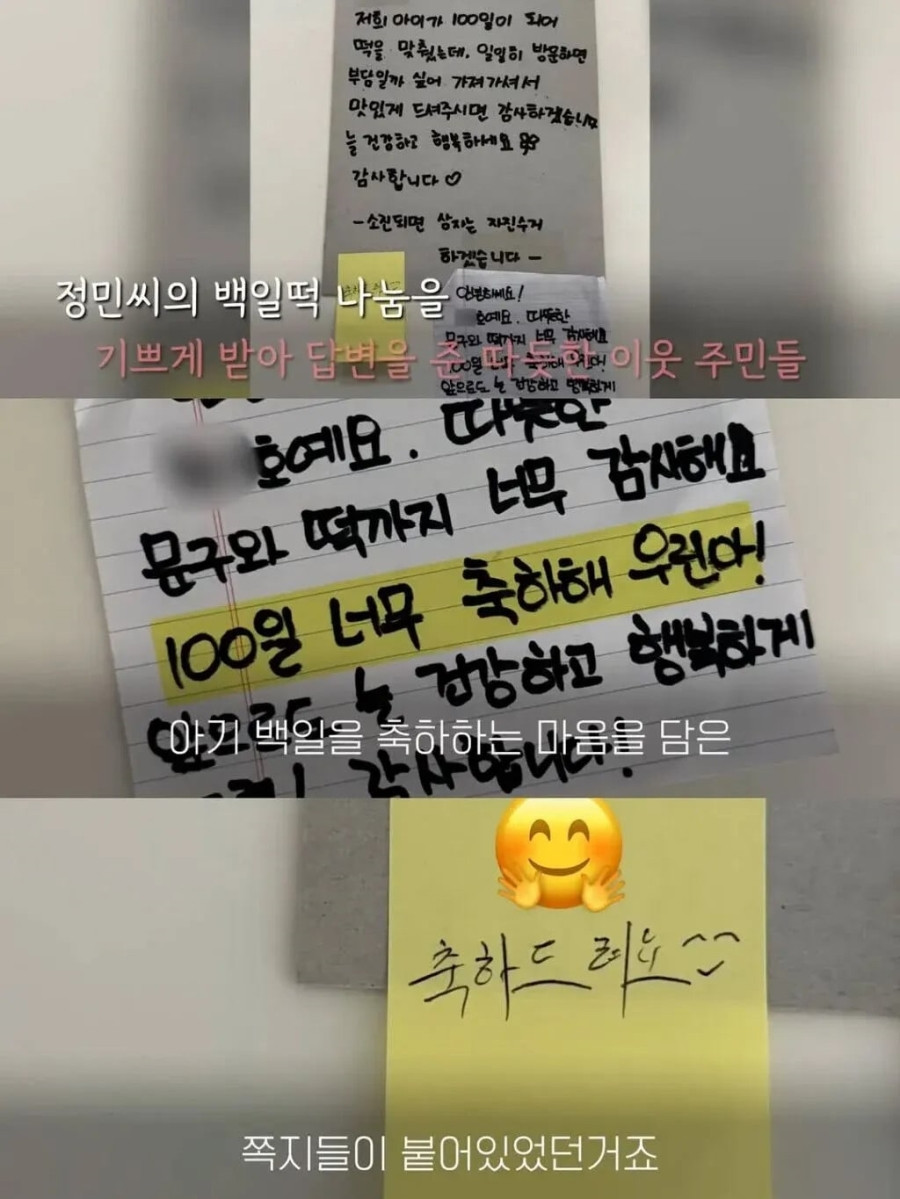 저희 아이가 100일이 되어
떡을 맞췄는데, 일일히 방문하면
부담일까 싶어 가져가셔서
맛있게 드셔주시면 감사하겠습니다
늘 건강하고 행복하세요
감사합니다♡
-소진되면 상자는 자진수거
하겠습니다-
안녕하세요!
호예요. 따뜻한
문구와 떡까지 너무 감사해요
100일 너무 축하해 우린아!
앞으로도 늘 건강하고 행복하게
정민씨의 백일떡 나눔을
기쁘게 받아 답변을 준 따듯한 이웃 주민들
호예요. 따뜻한
문구와 떡까지 너무 감사해요
100일 너무 축하해 우린아!
앞으로도 늘 건강하고 행복하게
감사합니다!
아기 백일을 축하하는 마음을 담은
축하드려요^^
쪽지들이 붙어있었던거죠